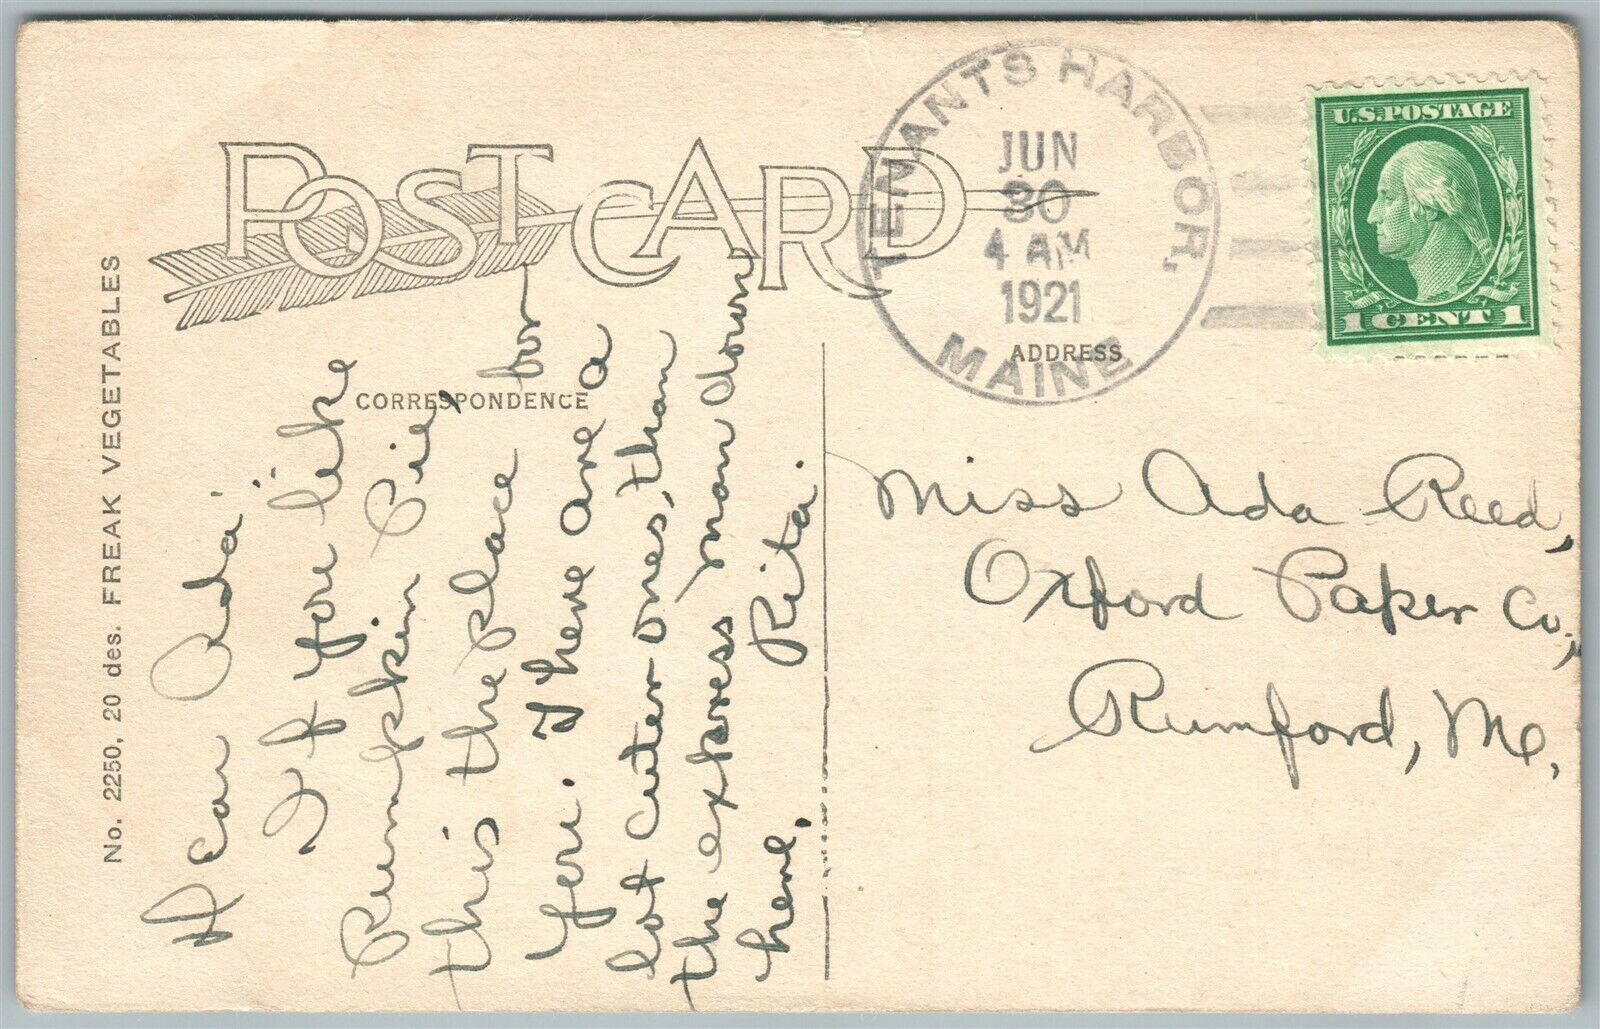 No. 2250, 20 des. FREAK VEGETABLES
POST CARD
CORRESPONDENCE
Dear Ada:
If you like
Pumpkin Pie,
this the place for
you. There are a
lot cuter ones, than
the express man down
here.
Rita.
TENANTS HARBOR,
JUN
30
4 AM
1921
MAINE
U.S. POSTAGE
1 CENT 1
ADDRESS
Miss Ada Reed,
Oxford Paper Co.,
Rumford, Me.